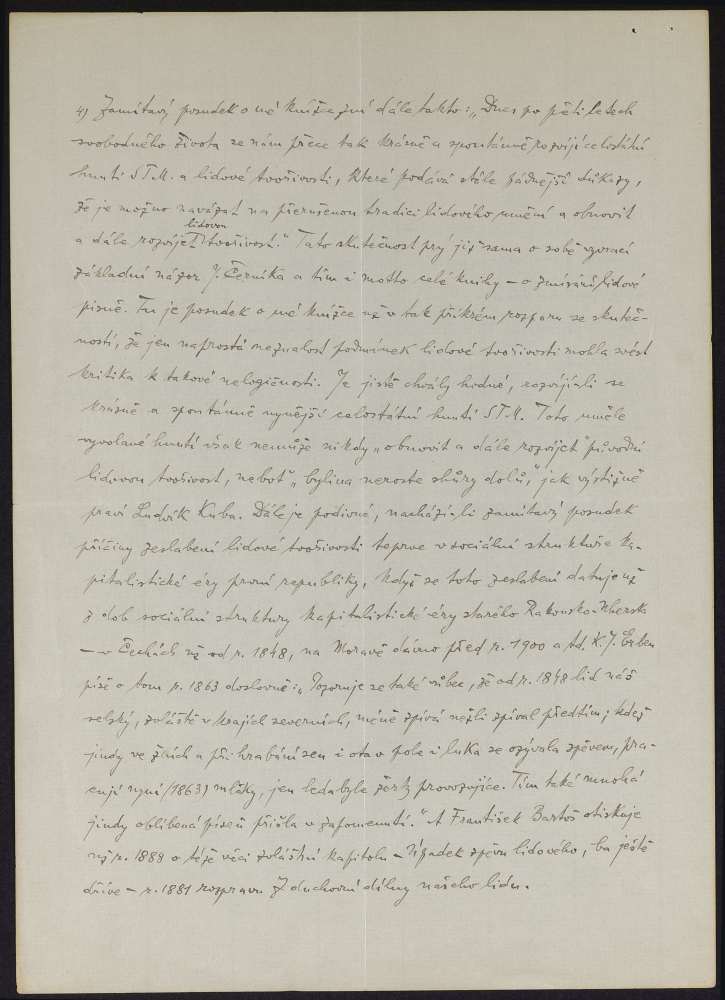 4) Zamítavý posudek o mé knížce zní dále takto: „Dnes po pěti letech
svobodného života se nám přece tak krásně a spontánně rozvíjí celostátní
hnutí STM. a lidové tvořivosti, které podává stále pádnější důkazy,
že je možno navázat na přerušenou tradici lidového umění a obnovit
a dále rozvíjet lidovou tvořivost.“ Tato skutečnost prý již sama o sobě vyvrací
základní názor J. Černíka a tím i motto celé knihy – o zmírání lidové
písně. Tu je posudek o mé knížce už v tak příkrém rozporu se skuteč-
ností, že jen naprostá neznalost podmínek lidové tvořivosti mohla svést
kritika k takové nelogičnosti. Je jistě chvály hodné, rozvíjí-li se
krásně a spontánně nynější celostátní hnutí STM. Toto uměle
vyvolané hnutí však nemůže nikdy „obnovit a dále rozvíjet“ původní
lidovou tvořivost, neboť „bylina neroste shůry dolů,“ jak výstižně
praví Ludvík Kuba. Dále je podivné, nachází-li zamítavý posudek
příčiny zeslabení lidové tvořivosti teprve v sociální struktuře ka-
pitalistické éry první republiky, když se toto zeslabení datuje už
z dob sociální struktury kapitalistické éry starého Rakousko-Uherska
– v Čechách už od r. 1848, na Moravě dávno před r. 1900 atd. K. J. Erben
píše o tom r. 1863 doslovně: „Pozoruje se také vůbec, že od r. 1848 lid náš
selský, zvláště v krajích severních, méně zpívá nežli zpíval předtím; kdež
jindy ve žních a při hrabání sen i otav pole i luka se ozývala zpěvem, pra-
cují nyní (1863) mlčky, jen ledabyle žerty provozujíce. Tím také mnohá
jindy oblíbená píseň přišla v zapomenutí.“ A František Bartoš otiskuje
už r. 1889 o téže věci zvláštní kapitolu – Úpadek zpěvu lidového, ba ještě
dříve – r. 1881 rozpravu Z duchovní dílny našeho lidu.